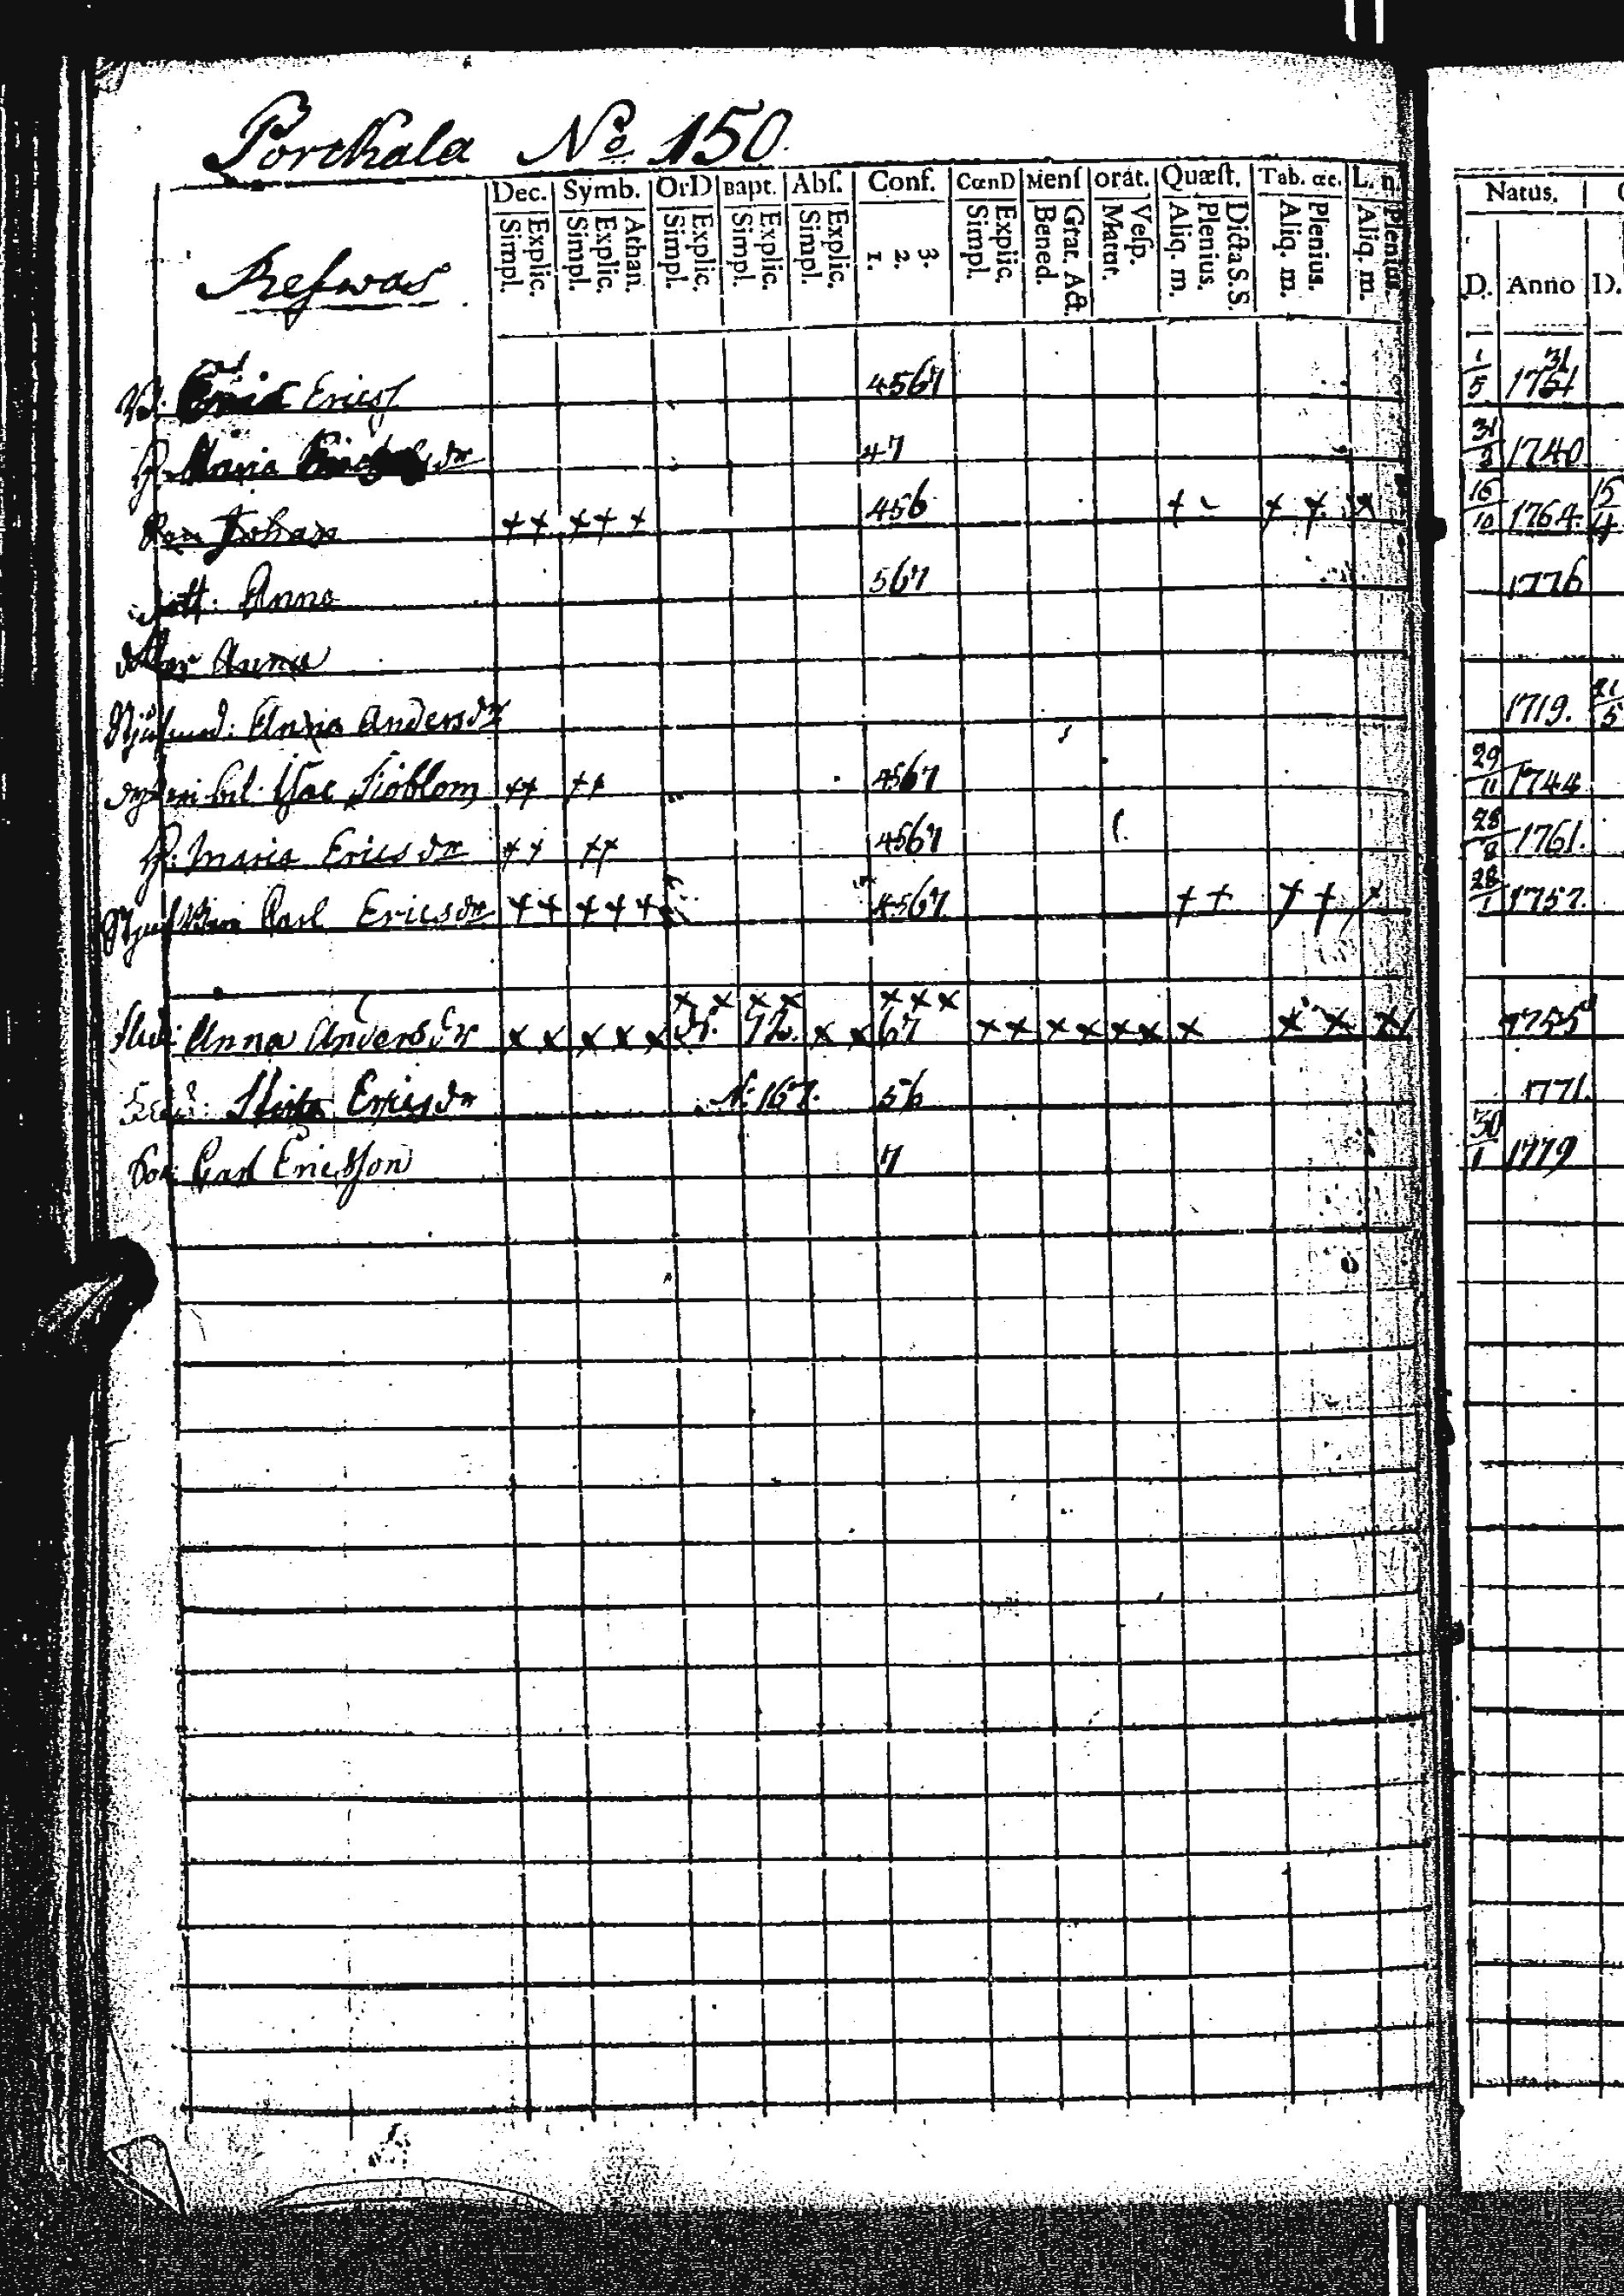 Porchala No. 150
Dec. Symb. OrD Bapt. Abſ. Conf. CœnD Menſ orat. Quæſt. Tab. œc. L. n. Natus.
Simpl. Explic. Simpl. Explic. Athan. Simpl. Explic. Simpl. Explic. Simpl. Explic. 1. 2. 3. Simpl. Explic. Bened. Grat. Act. Matut. Veſp. Aliq. m. Plenius. Dicta S. S. Aliq. m. Plenius. Aliq. m. Plenius. D. Anno D.
Refwas
Erics 4567 1/5 1731
H. Maria dr 47 31 1740
Son Johan ++ +++ 456 + + + 16/10 1764. 15/4
dott: Anna 567 1776
Anna
Anna Andersdr 1719. 21/5
Isac Siöblom ++ ++ 4567 29/11 1744
H: Maria Ericsdr ++ ++ 4567 28/8 1761.
Carl Ericsdr ++ +++ 4567 ++ ++ 28/1 1757.
×× ×× ×××
Anna Andersdr ×× ××× 72. ×× 67 ×× ×× ×× × ×× × 1755
Ericsdr N. 167. 56 1771.
Son: Carl Ericsson 7 30/1 1779